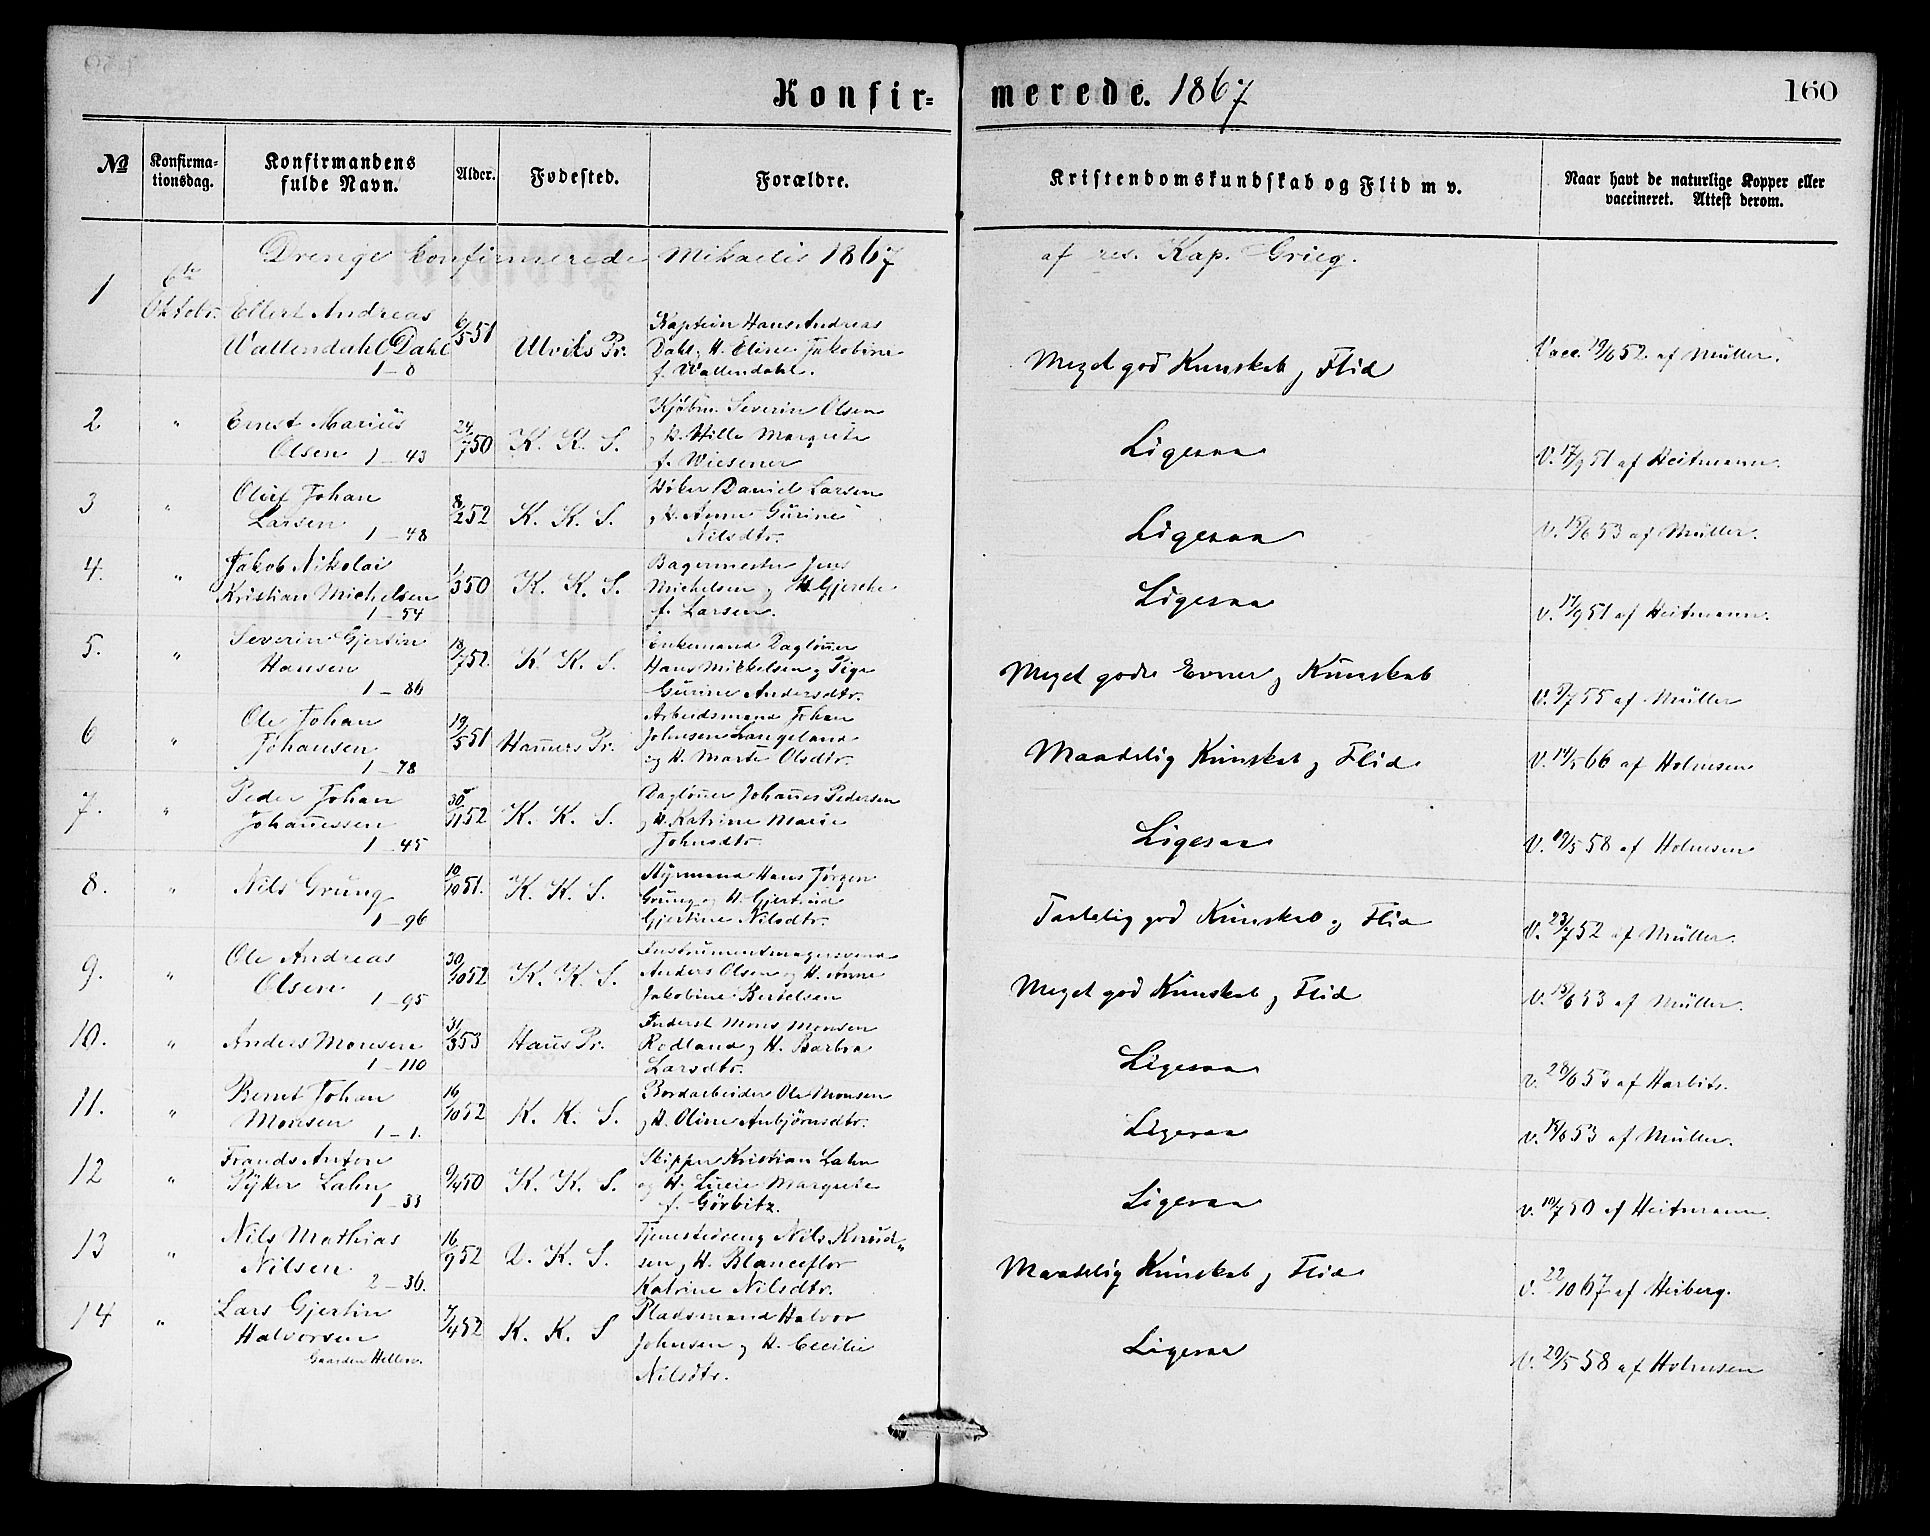 Konfir=
merede. 1867
160
№
Konfirma-
tionsdag.
Konfirmandens
fulde Navn.
Alder.
Fødested.
Forældre.
Kristendomskundskab og Flid m v.
Naar havt de naturlige Kopper eller
vaccineret. Attest derom.
Drenge konfirmerede Mikaelis 1867
af res. Kap. Grieg.
1
6te
Oktobr.
Ellert Andreas
Wallendahl Dahl
1–8
6/5 51
Ulviks Pr.
Kaptein Hans Andreas
Dahl, H. Eline Jakobine
f. Wallendahl.
Meget god Kunskab og Flid
Vacc. 19/6 52. af Müller.
2
"
Ernst Marius
Olsen 1–43
24/7 50
K. K. S.
Kjøbm. Severin Olsen
og H. Hille Margrete
f. Wiesener
Ligesaa
V. 17/9 51 af Heitmann.
3
"
Oluf Johan
Larsen
1–48
8/2 52
K. K. S.
Høker Daniel Larsen
og H. Anne Gurine
Nilsdtr.
Ligesaa
V. 18/6 53 af Müller.
4.
"
Jakob Nikolai
Kristian Michelsen
1–54
1/3 50
K. K. S.
Bagermester Jens
Michelsen og H. Gjerche
f. Larsen.
Ligesaa
V. 17/9 51 af Heitmann.
5.
"
Severin Gjertin
Hansen
1–86
18/7 52.
K. K. S.
Enkemand Dagløner
Hans Mikkelsen og Pige
Gurine Andersdtr.
Meget gode Evner og Kunskab
V. 9/7 55 af Müller
6
"
Ole Johan
Johansen
1–78
19/5 51
Hamers Pr.
Arbeidsmand Johan
Johnsen Langeland
og H. Marte Olsdtr.
Maadelig Kunskab og Flid
V. 14/5 66 af Holmsen
7.
"
Peder Johan
Johanessen
1–45
30/11 52
K. K. S.
Dagløner Johanes Pedersen
og H. Katrine Marie
Johnsdtr.
Ligesaa
V. 19/5 58 af Holmsen
8.
"
Nils Grung
1–96
10/10 51.
K. K. S.
Styrmand Hans Jørgen
Grung og H. Gjertrud
Gjertine Nilsdtr.
Taalelig god Kunskab og Flid
V. 23/7 52 af Müller.
9.
"
Ole Andreas
Olsen
1–95
30/10 52
K. K. S.
Instrumentmagersvend
Anders Olsen og H. Anne
Jakobine Bertelsen
Meget god Kunskab og Flid
V. 18/6 53 af Müller.
10.
"
Anders Monsen
1–110
31/3 53
Haus Pr.
Inderst Mons Monsen
Rødland og H. Barbra
Larsdtr.
Ligesaa
V. 28/6 53 af Harbitz.
11.
"
Bernt Johan
Monsen 1–1.
16/10 52
K. K. S.
Bordarbeider Ole Monsen
og H. Oline Anbjørnsdtr.
Ligesaa
V. 18/6 53 af Müller.
12
"
Frands Anton
Pytter Lahn
1–33
9/4 50
K. K. S.
Skipper Kristian Lahn
og H. Lucie Margrete
f. Görbitz.
Ligesaa
V. 10/7 50 af Heitmann.
13
"
Nils Mathias
Nilsen
2–36.
16/9 52
D. K. S.
Tjenestedreng Nils Knud„
sen og H. Blanceflor
Katrine Nilsdtr.
Maadelig Kunskab og Flid
V. 22/10 67 af Heiberg.
14
"
Lars Gjertin
Halvorsen
Gaarden Hellen.
7/4 52
K. K. S
Pladsmand Halvor
Johnsen og H. Cecilie
Nilsdtr.
Ligesaa
V. 29/5 58 af Holmsen